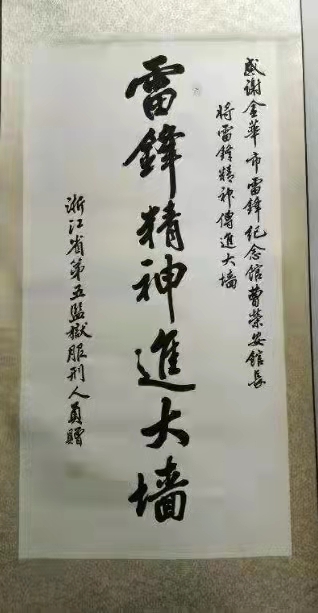 感谢金華市雷鋒纪念馆曹荣安館長
将雷鋒精神傳進大墙
雷鋒精神進大墙
浙江省第五监獄服刑人員贈